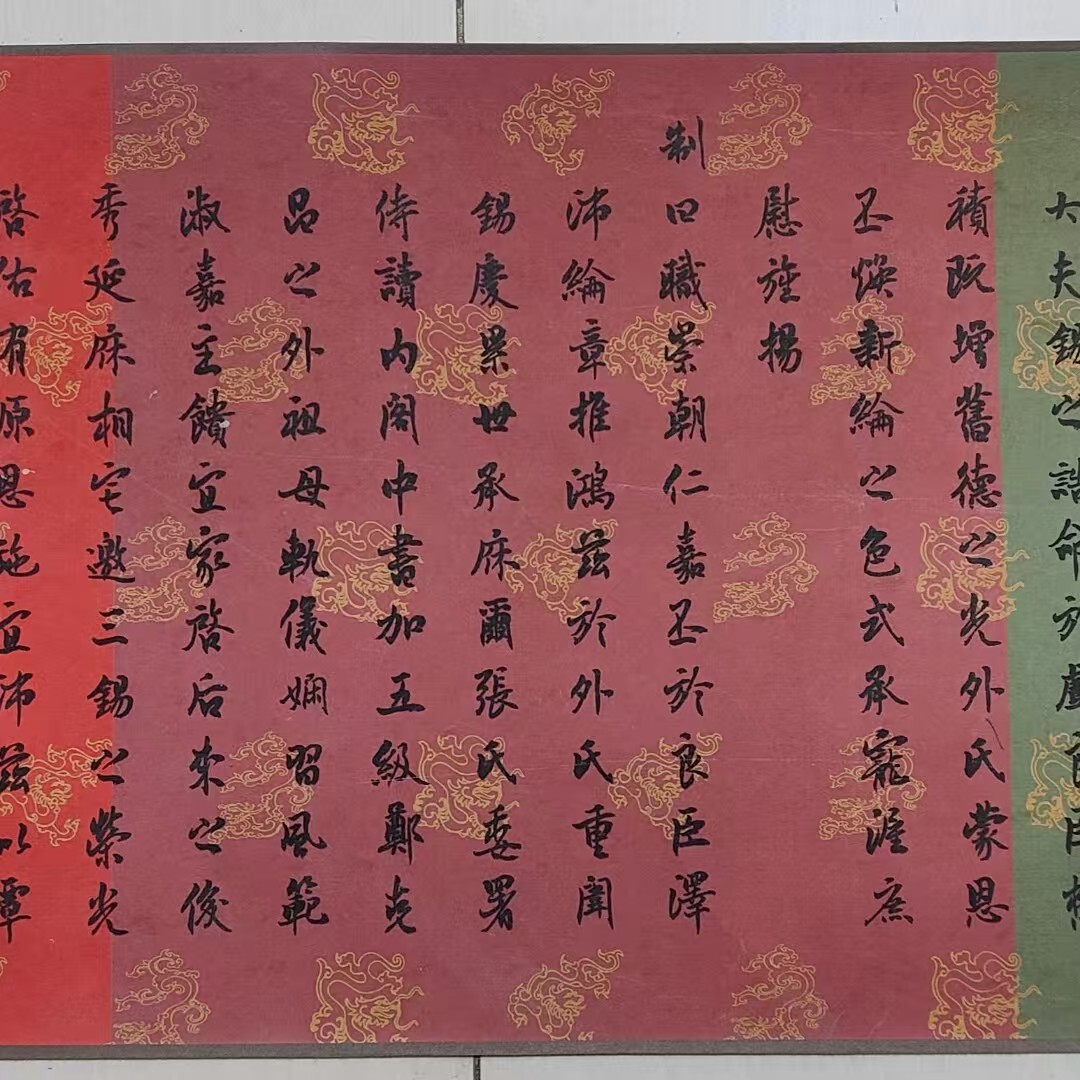 大夫錫之誥命於戲良臣
積既增舊德之光外氏蒙恩
丕煥新綸之色式承寵渥庶
慰旌揚
制
曰職崇朝仁嘉丕於良臣澤
沛綸章推鴻茲於外氏重闈
錫慶累世承庥爾張氏委署
侍讀內閣中書加五級鄭炎
品之外祖母軌儀嫻習風範
淑嘉主饋宜家啓后來之俊
秀延庥相宅邀三錫之榮光
啓佑有原恩施宜沛茲以覃